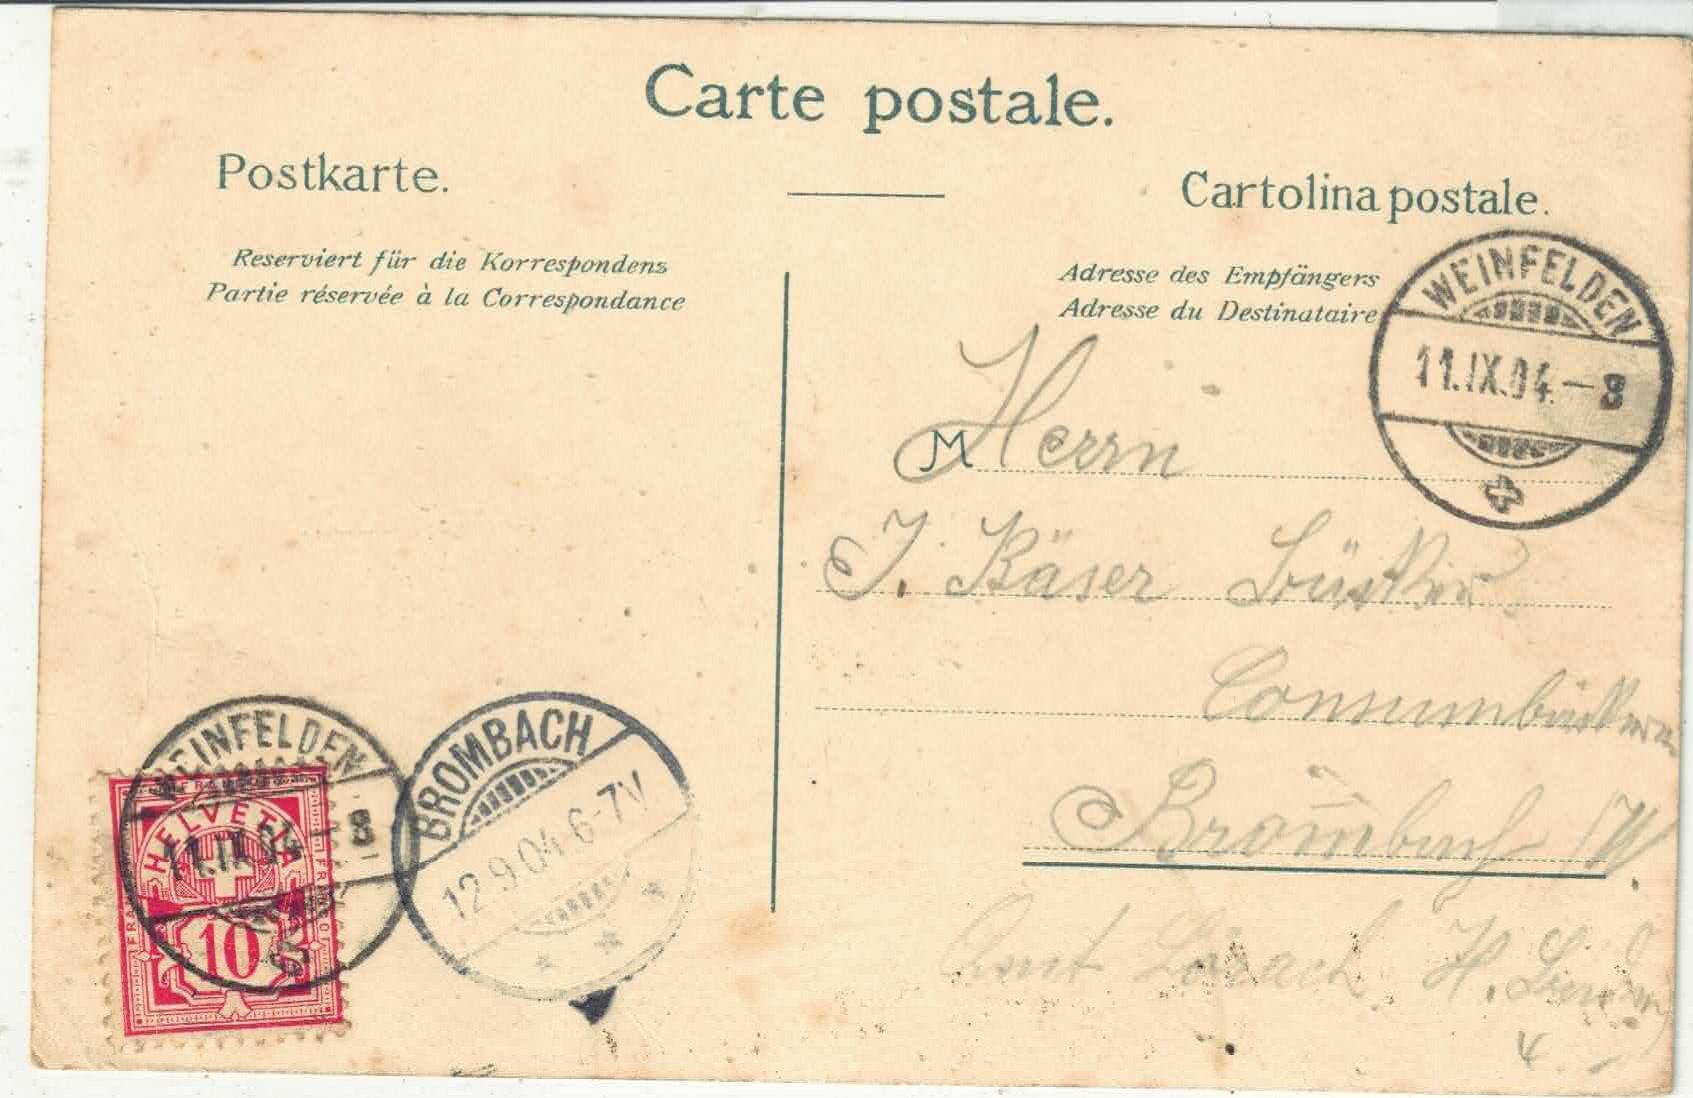 Carte postale.
Postkarte.
Cartolina postale.
Reserviert für die Korrespondens
Partie réservée à la Correspondance
Adresse des Empfängers
Adresse du Destinataire
WEINFELDEN
11.IX.04.-8
M Herrn
J. Käser
Brombach /W.
Amt Lörach H.
WEINFELDEN
11.IX.04-8
BROMBACH
12.9.04.6-7V
FRANCO
HELVETIA
FRANCO
FRANCO
10